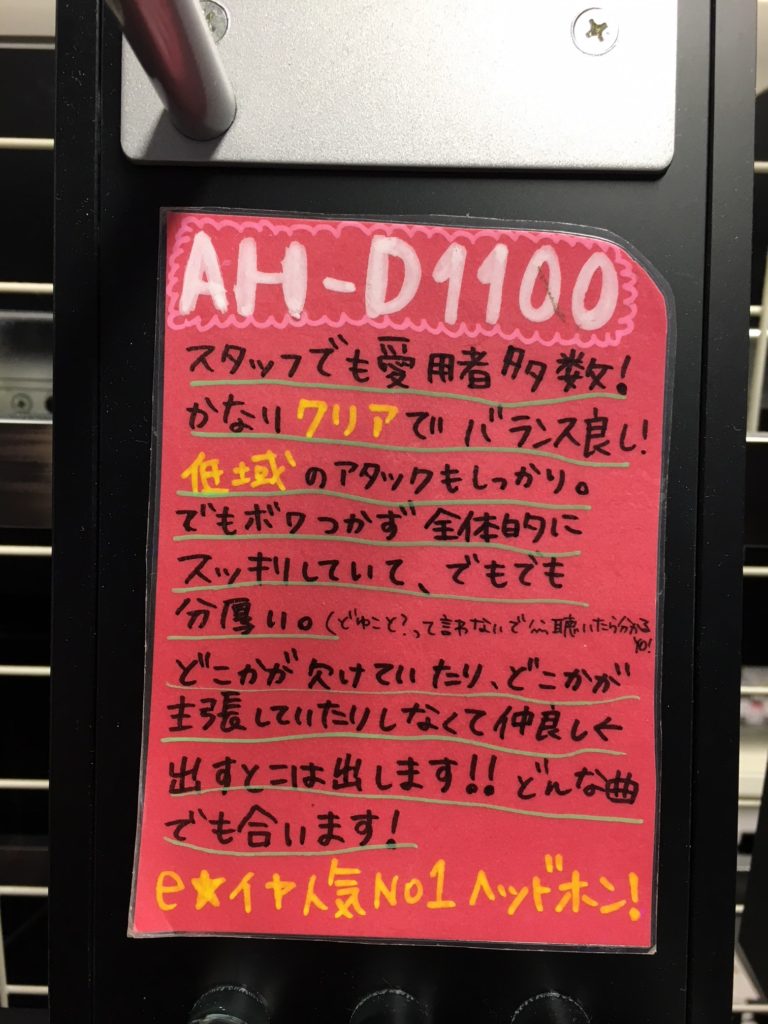 AH-D1100
スタッフでも愛用者多数!
かなりクリアでバランス良し!
低域のアタックもしっかり。
でもボワつかず全体的に
スッキリしていて、でもでも
分厚い。(どゆこと?って言わないで〰聴いたら分かる
yo!
どこかが欠けていたり、どこかが
主張していたりしなくて仲良し←
出すとこは出します!!どんな曲
でも合います!
e★イヤ人気NO1ヘッドホン!